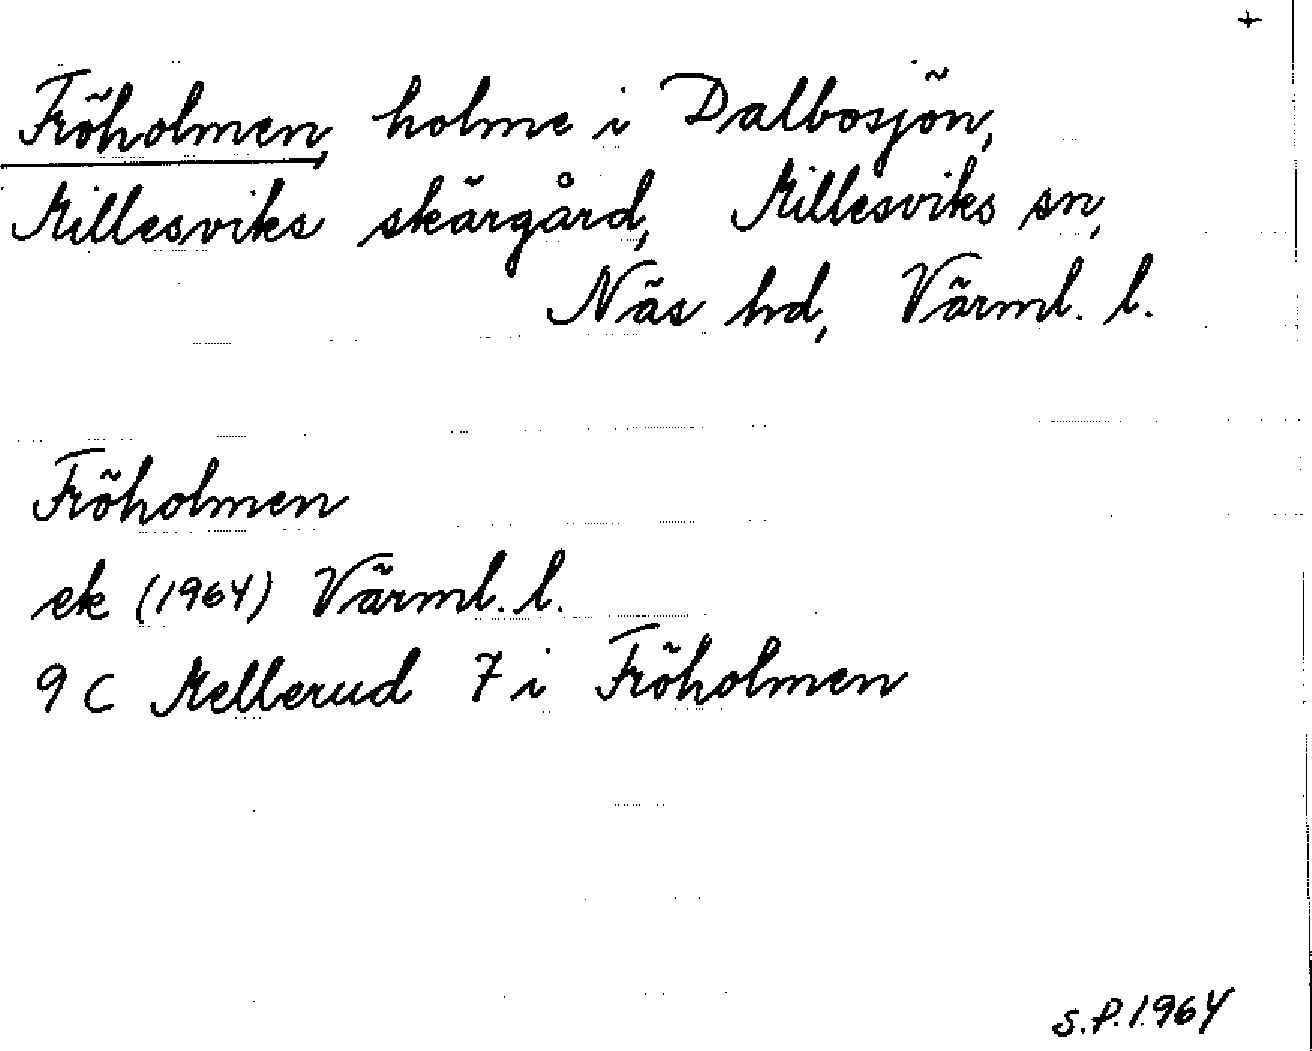 +
Fröholmen, holme i Dalbosjön,
Millesviks skärgård, Millesviks sn,
Näs hd, Värml. l.
Fröholmen
ek (1964) Värml. l.
9 C Mellerud 7 i Fröholmen
S.P. 1964